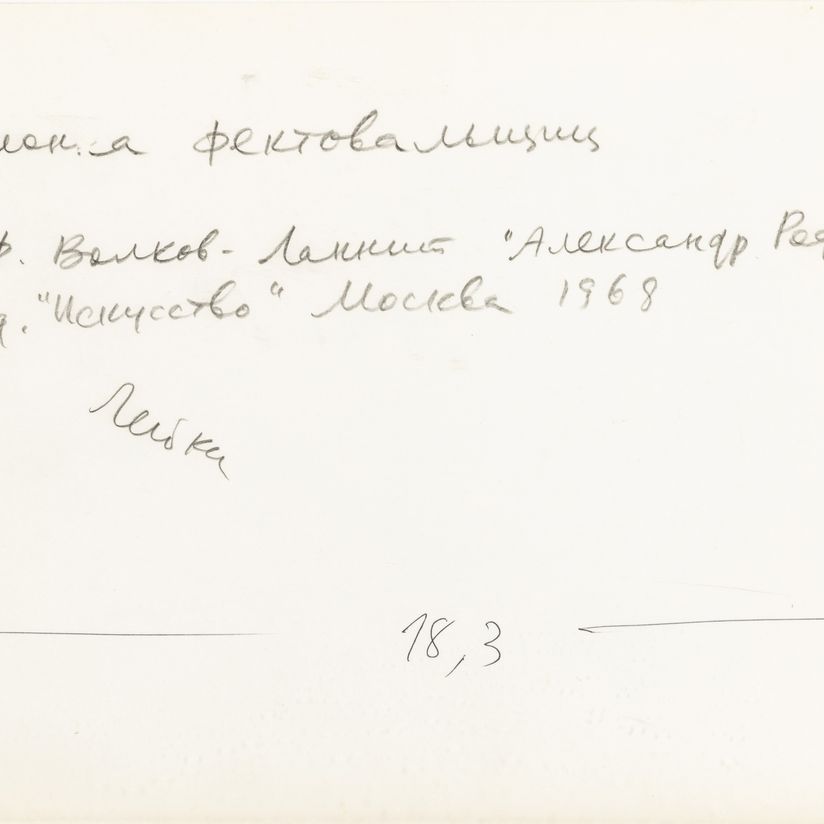 фектовальщиц
Ф. Волков-Ланнит "Александр
"Искусство" Москва 1968
Лейка
18,3